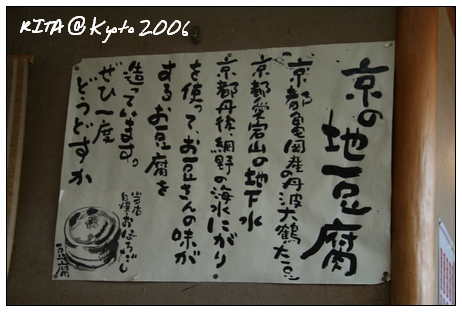 RITA @ Kyoto 2006
京の地豆腐
京都亀岡産の丹波大鶴大豆
京都愛宕山の地下水
京都丹後・網野の海水にがり・
を使って、お豆さんの味が
するお豆腐を
造っています。
ぜひ一度
どうどすか
当店
自慢おぼろだし
豆腐